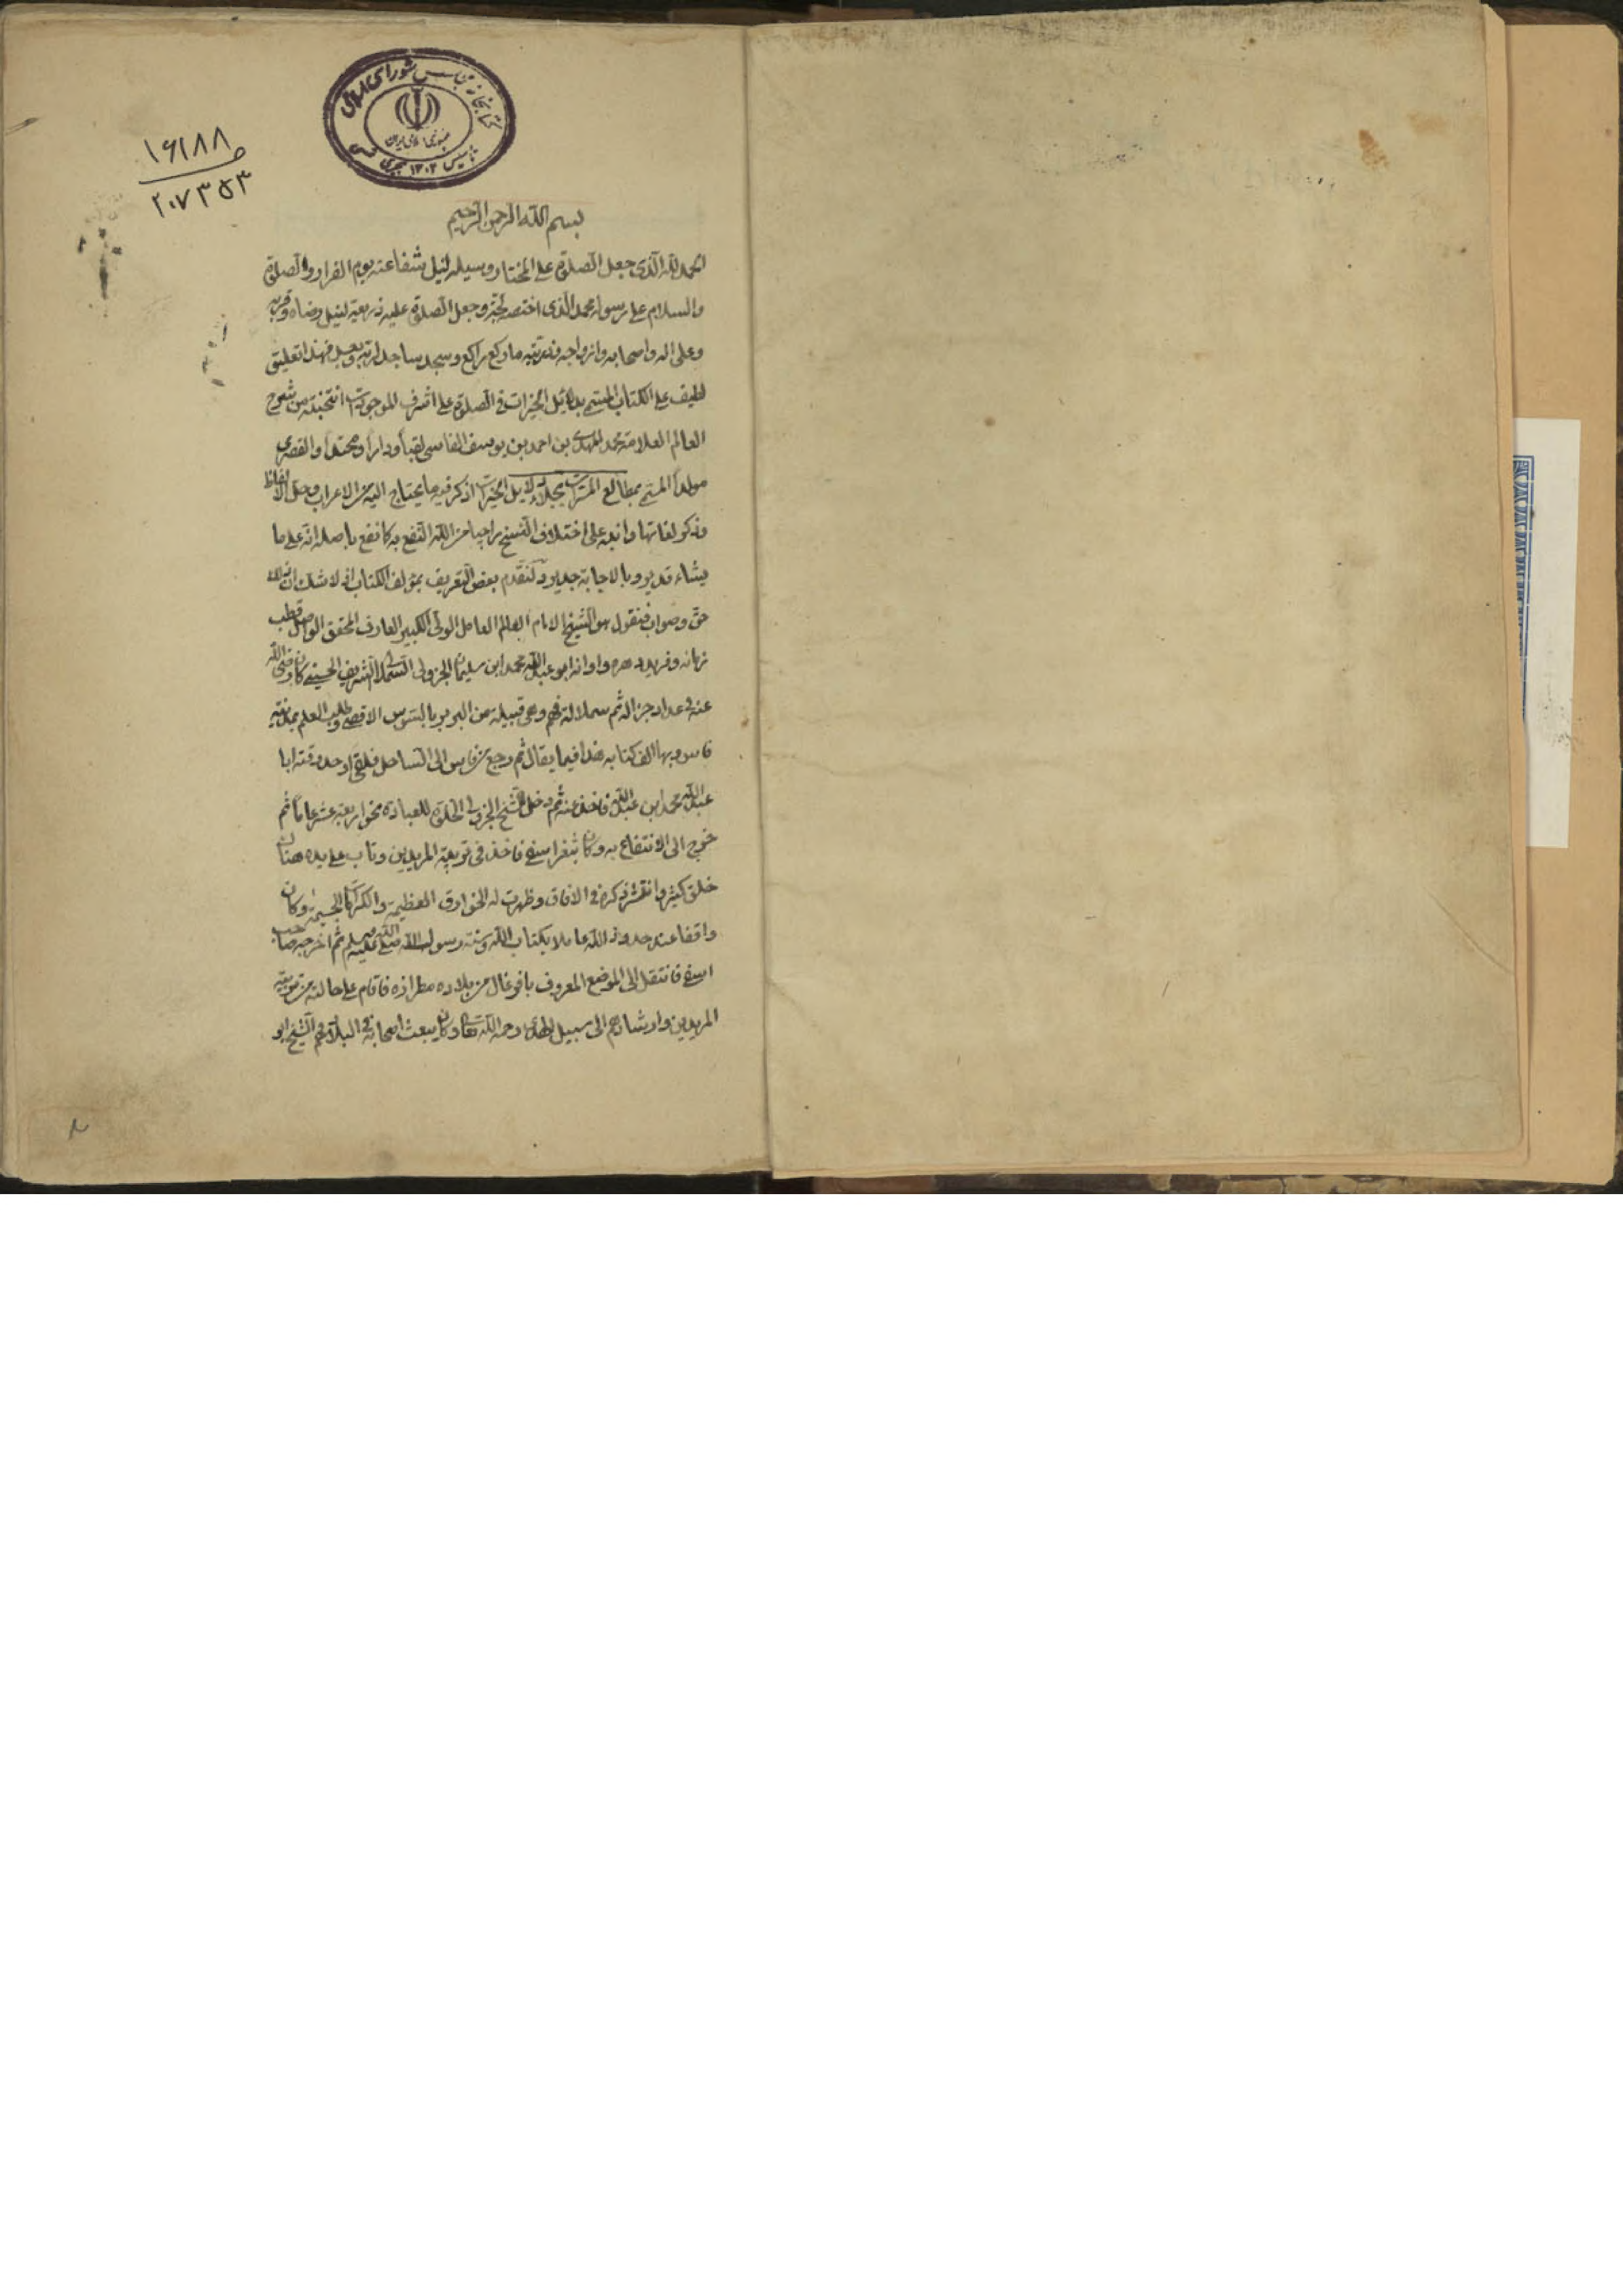 كتابخانه مجلس شورای اسلامی
جمهوری اسلامی ایران
تأسیس ۱۳۰۲ هجری
۱۶۱۸۸
۲۰۷۳۵۳
بسم الله الرحمن الرحيم
الحمد لله الذى جعل الصلوة على المختار وسيلة لنيل شفاعته يوم الفرار والصلوة
والسلام على رسوله محمد الذى اختصه لمحبته وجعل الصلوة عليه ذريعة لنيل رضاه وقربه
وعلى اله واصحابه وازواجه وذريته ما ركع راكع وسجد ساجد لربه وبعد فهذا تعليق
لطيف على الكتاب المسمى بدلائل الخيرات فى الصلوة على اشرف الموجودات انتخبته من شرح
العالم العلامة محمد المهدى بن احمد بن يوسف الفاسى لقبا ودارا ومحتدا والقصرى
مولدا المسمى بمطالع المسرات بجلاء دلايل الخيرات اذكر فيه ما يحتاج اليه من الاعراب وحل الالفاظ
وذكر لغاتها وانبه على اختلاف النسخ راجيا من الله النفع به كما نفع باصله انه على ما
يشاء قدير وبالاجابة جدير ولنقدم بعض التعريف بمؤلف الكتاب اذ لا شك ان ذلك
حق وصواب فنقول هو الشيخ الامام العالم العامل الولى الكبير العارف المحقق الواصل قطب
زمانه وفريد دهره واوانه ابو عبد الله محمد ابن سليمان الجزولى السملالى الشريف الحسنى كان رضى الله
عنه فى عداد جزاله ثم سملالة منهم وهى قبيلة من البربر بالسوس الاقصى وطلب العلم بمدينة
فاس وبها الف كتابه هذا فيما يقال ثم رجع من فاس الى الساحل فلقى اوحد وقته ابا
عبد الله محمد ابن عبد الله فاخذ عنه ثم دخل الشيخ الجزولى الخلوة للعبادة نحو اربعة عشر عاما ثم
خرج الى الانتفاع به وكان بثغر اسفى فاخذ فى تربية المريدين وتاب على يده هنالك
خلق كثير وانتشر ذكره فى الافاق وظهرت له الخوارق العظيمة والكرامات الجسيمة وكان
واقفا عند حدود الله عاملا بكتاب الله وسنة رسول الله صلى الله عليه وسلم ثم اخرجه صاحب
اسفى فانتقل الى الموضع المعروف بافوغال من بلاده مطرازه فاقام على حالته من تربية
المريدين وارشادهم الى سبيل الهدى رحمه الله تعالى وكان يبعث اصحابه فى البلاد منهم الشيخ ابو